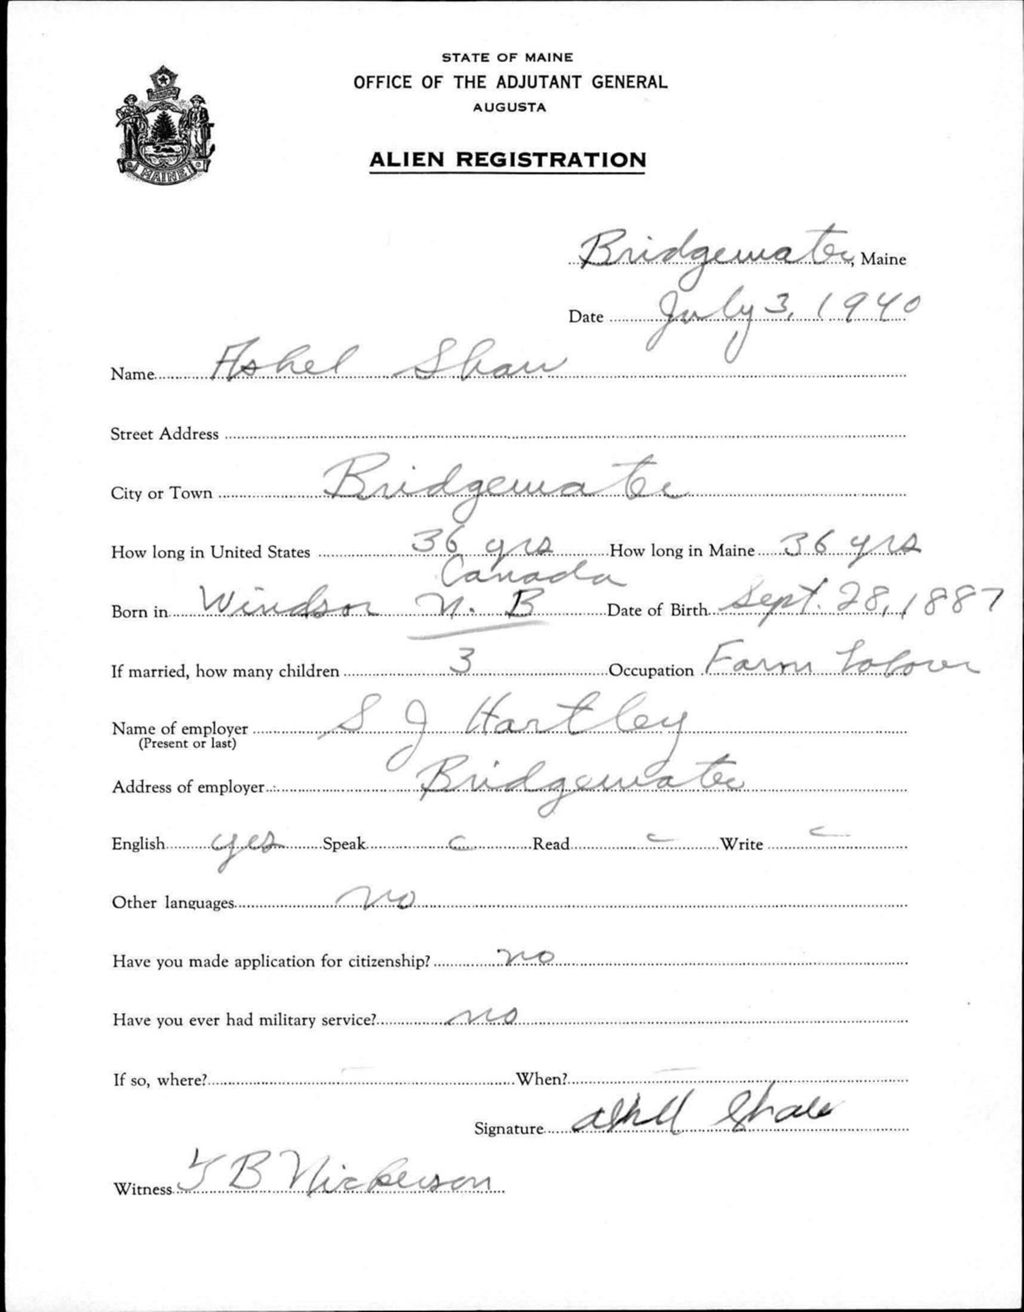 STATE OF MAINE
OFFICE OF THE ADJUTANT GENERAL
AUGUSTA
ALIEN REGISTRATION
MAINE
Bridgewater, Maine
Date July 3, 1940
Name Ashel Shaw
Street Address
City or Town Bridgewater
How long in United States 36 yrs How long in Maine 36 yrs
Canada
Born in Windsor N. B Date of Birth Sept. 28, 1887
If married, how many children 3 Occupation Farm Labover
Name of employer S J Hartley
(Present or last)
Address of employer Bridgewater
English yes Speak Read Write
Other languages no
Have you made application for citizenship? no
Have you ever had military service? no
If so, where? When?
Signature Shaw
Witness B Nickerson